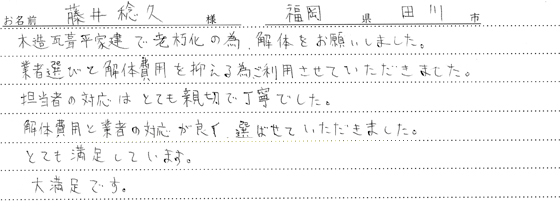 お名前 藤井稔久 様 福岡 県 田川 市
木造瓦葺平家建で老朽化の為、解体をお願いしました。
業者選びと解体費用を抑える為ご利用させていただきました。
担当者の対応はとても親切で丁寧でした。
解体費用と業者の対応が良く、選ばせていただきました。
とても満足しています。
大満足です。